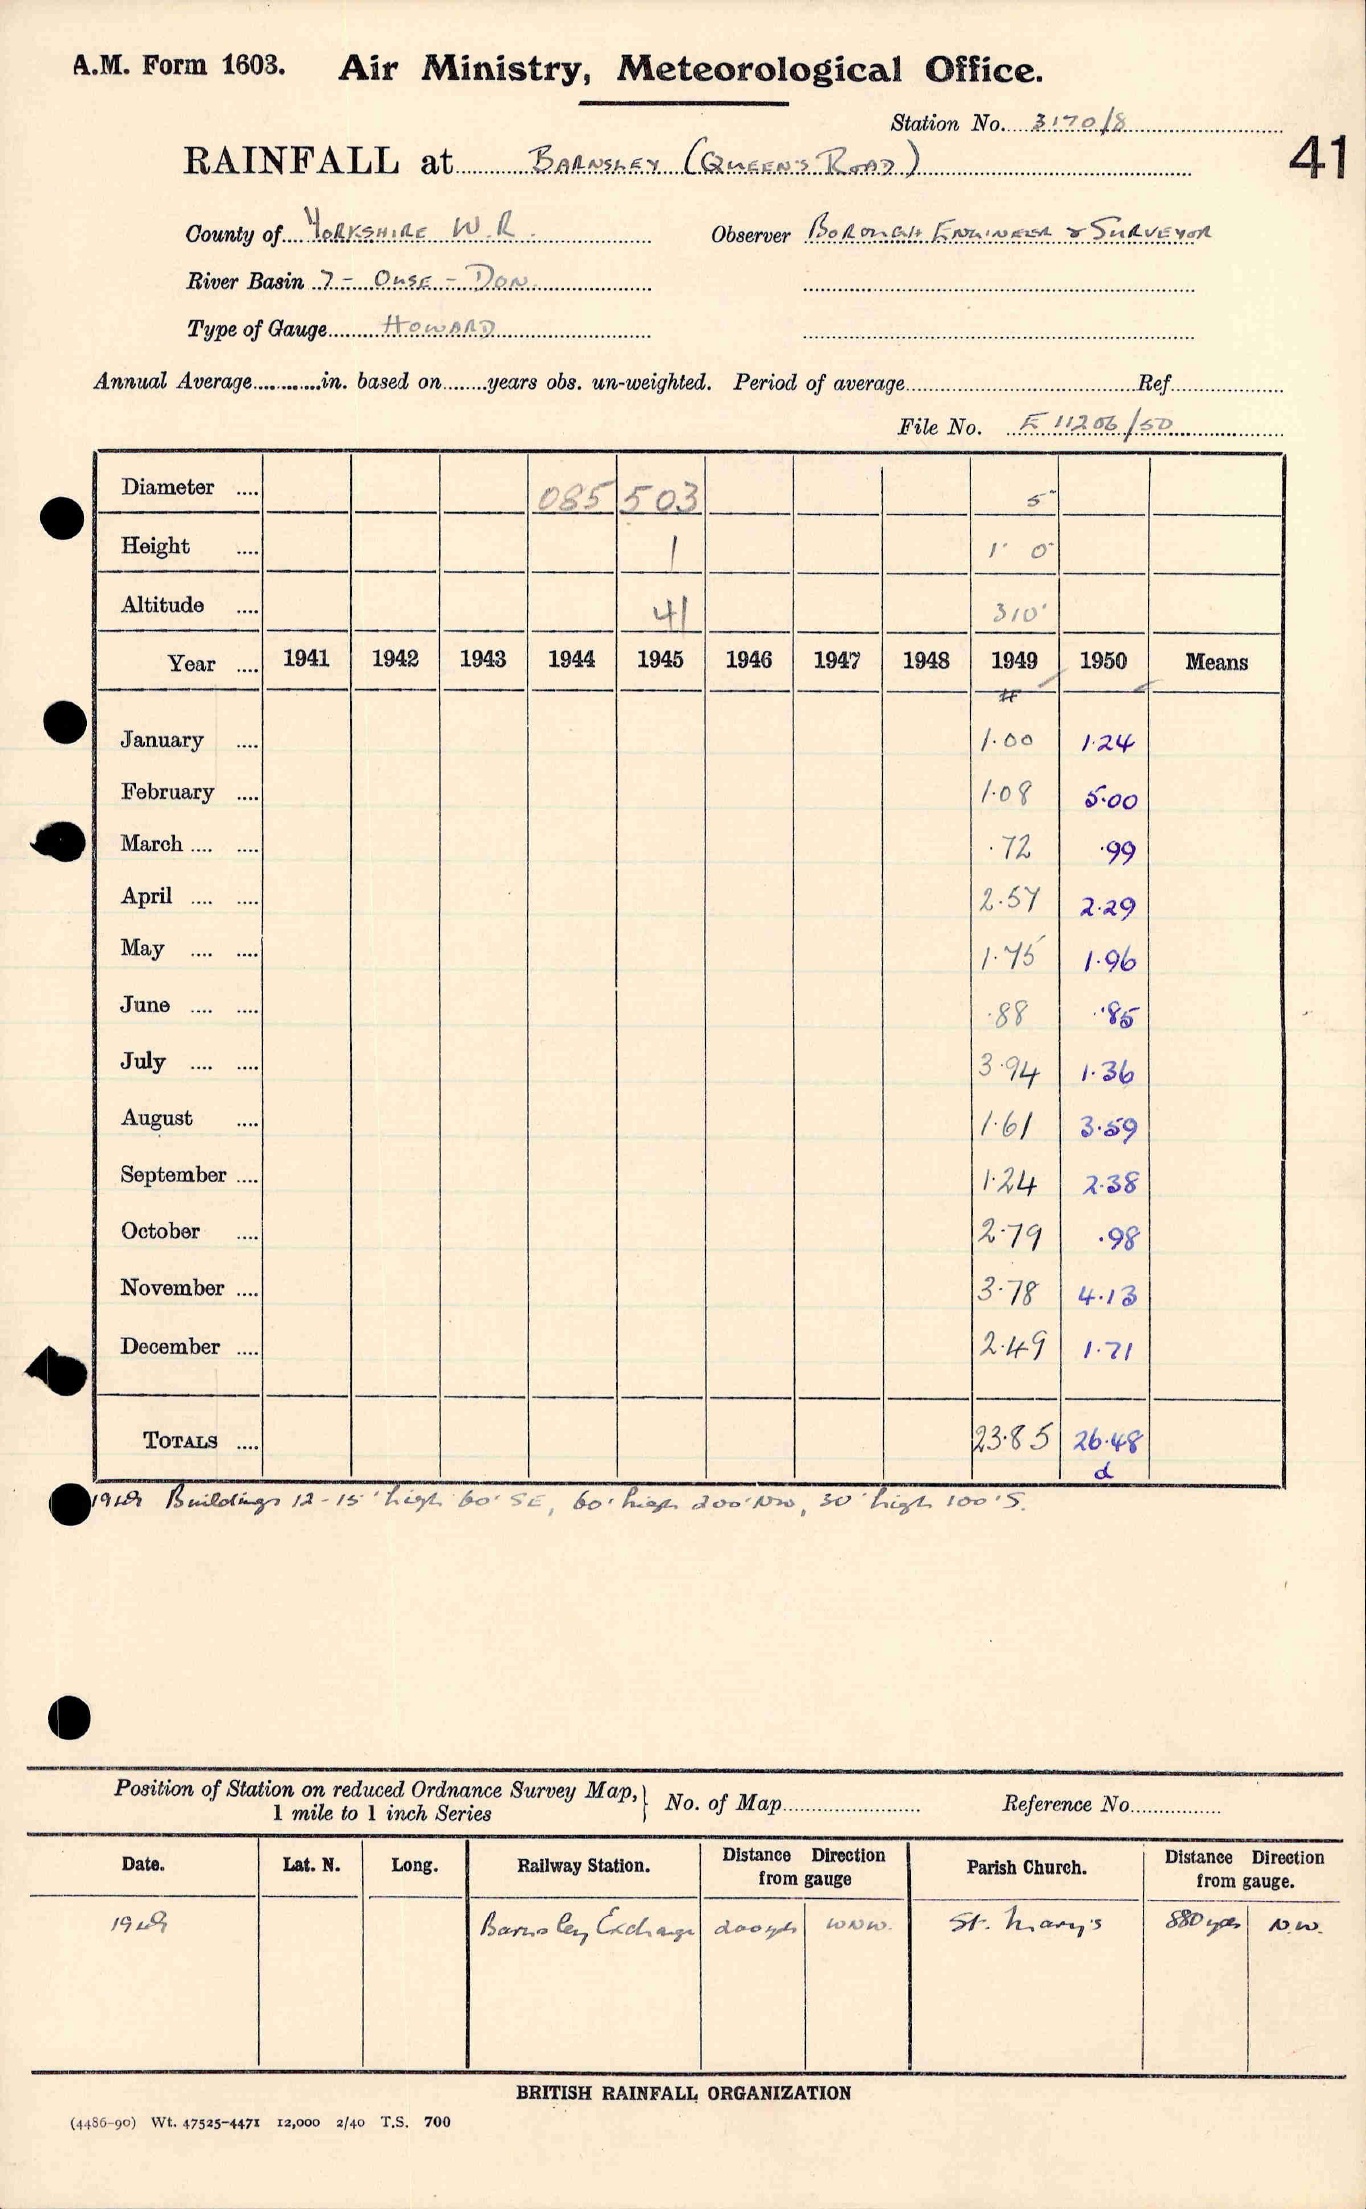 A.M. Form 1603. Air Ministry, Meteorological Office.
Station No. 3170/8
RAINFALL at BARNSLEY (QUEEN'S ROAD) 41
County of YORKSHIRE W.R. Observer BOROUGH ENGINEER & SURVEYOR
River Basin 7 - OUSE - DON.
Type of Gauge HOWARD
Annual Average............in. based on........years obs. un-weighted. Period of average........Ref........
File No. E 11206/50
Diameter .... 085 503 5"
Height .... 1 1' 0"
Altitude .... 41 310'
Year .... 1941 1942 1943 1944 1945 1946 1947 1948 1949 1950 Means
#
January .... 1.00 1.24
February .... 1.08 5.00
March .... .... .72 .99
April .... .... 2.57 2.29
May .... .... 1.75 1.96
June .... .... .88 .85
July .... .... 3.94 1.36
August .... 1.61 3.59
September .... 1.24 2.38
October .... 2.79 .98
November .... 3.78 4.13
December .... 2.49 1.71
TOTALS .... 23.85 26.48
d
1949 Buildings 12-15' high 60' SE, 60' high 200' NW, 30' high 100' S.
Position of Station on reduced Ordnance Survey Map,} No. of Map........ Reference No........
1 mile to 1 inch Series
Date. Lat. N. Long. Railway Station. Distance Direction from gauge Parish Church. Distance Direction from gauge.
1949 Barnsley Exchange 200 yds WNW. St. Mary's 880 yds N.W.
BRITISH RAINFALL ORGANIZATION
(4486-90) Wt. 47525-4471 12,000 2/40 T.S. 700